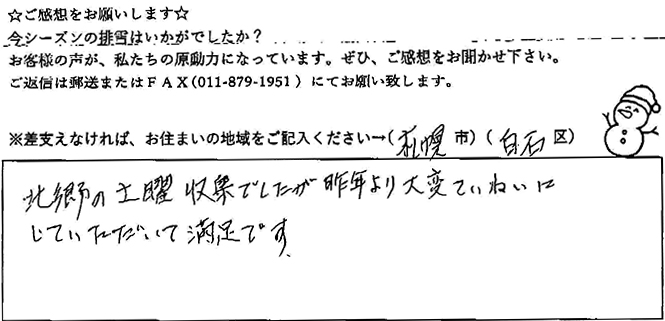 ☆ご感想をお願いします☆
今シーズンの排雪はいかがでしたか？
お客様の声が、私たちの原動力になっています。ぜひ、ご感想をお聞かせ下さい。
ご返信は郵送またはＦＡＸ(011-879-1951）にてお願い致します。
※差支えなければ、お住まいの地域をご記入ください→(札幌市）(白石区）
北郷の土曜収集でしたが昨年より大変ていねいに
していただいて満足です。